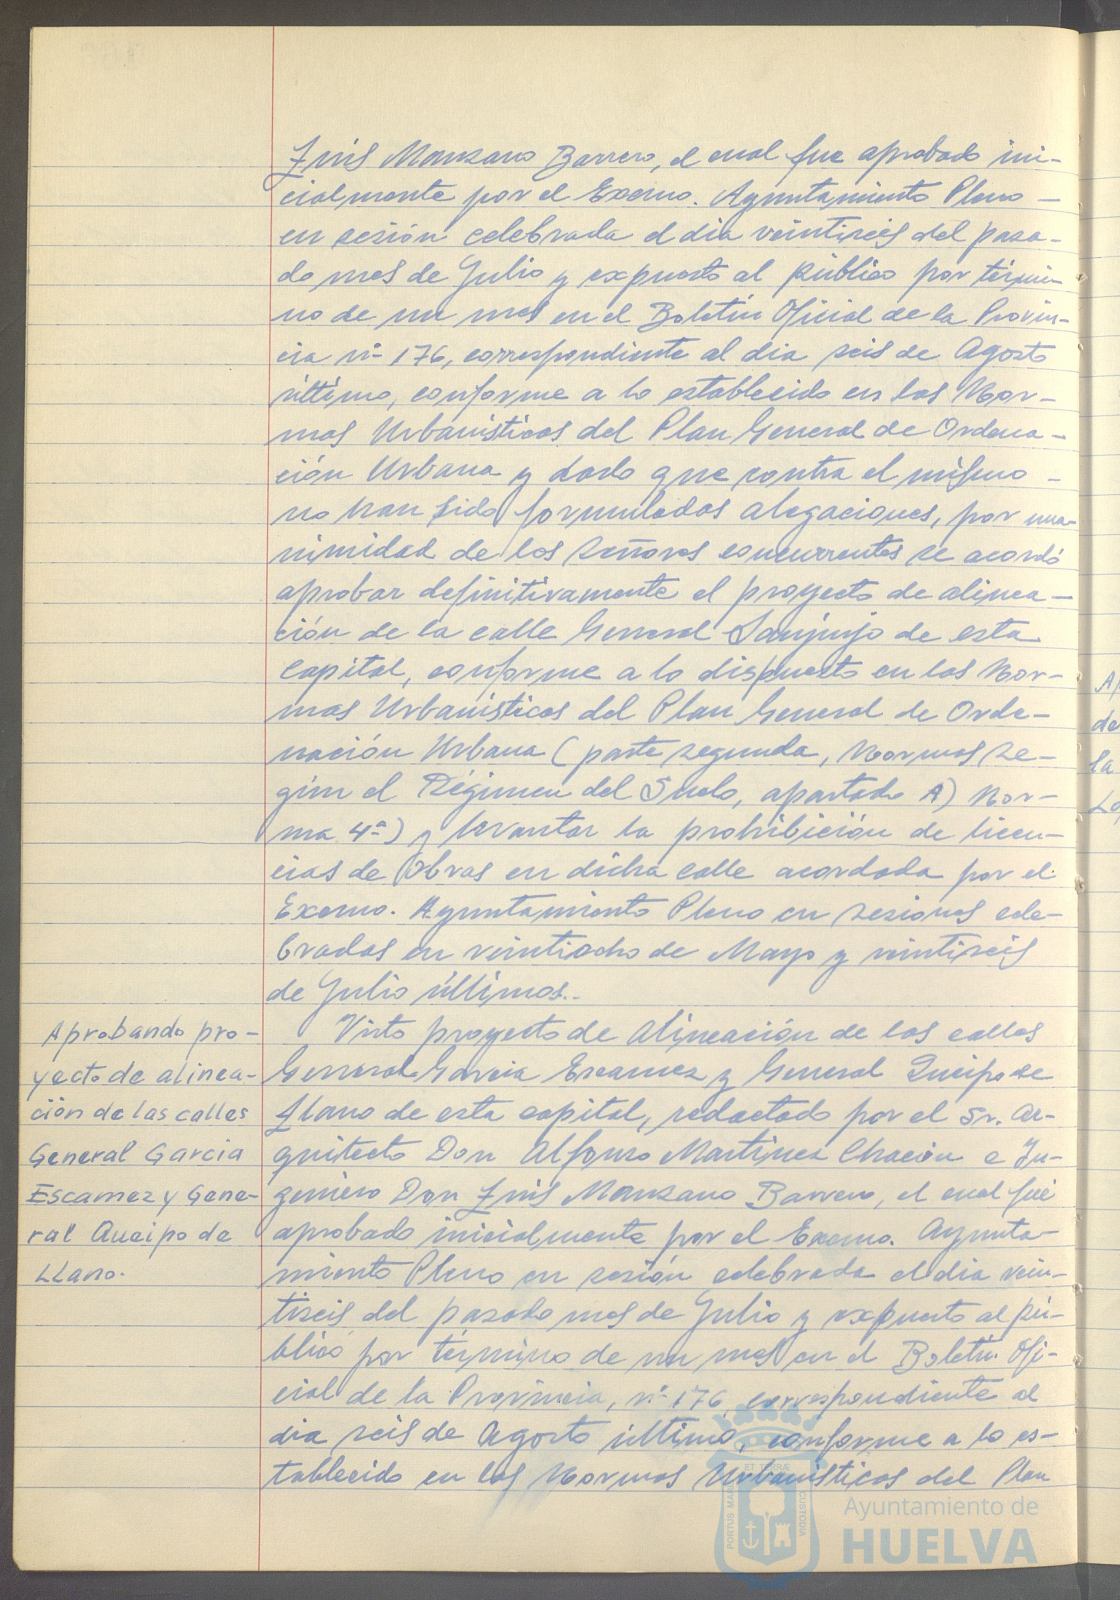 Luis Manzano Barrero, el cual fue aprobado ini-
cialmente por el Excmo. Ayuntamiento Pleno -
en sesión celebrada el dia veintiseis del pasa-
do mes de Julio y expuesto al público por térmi-
no de un mes en el Boletín Oficial de la Provin-
cia nº 176, correspondiente al dia seis de Agosto
último, conforme a lo establecido en las Nor-
mas Urbanisticas del Plan General de Ordena-
ción Urbana y dado que contra el mismo -
no han sido formuladas alegaciones, por una-
nimidad de los señores concurrentes se acordó
aprobar definitivamente el proyecto de alinea-
ción de la calle General Sanjurjo de esta
capital, conforme a lo dispuesto en las Nor-
mas Urbanisticas del Plan General de Orde-
nación Urbana (parte segunda, Normas se-
gún el Régimen del Suelo, apartado A) Nor-
ma 4ª) y levantar la prohibición de licen-
cias de Obras en dicha calle acordada por el
Excmo. Ayuntamiento Pleno en sesiones cele-
bradas en veintiocho de Mayo y veintiseis
de Julio últimos.-
Aprobando pro-
yecto de alinea-
ción de las calles
General Garcia
Escamez y Gene-
ral Queipo de
Llano.
Visto proyecto de alineación de las calles
General Garcia Escamez y General Queipo de
Llano de esta capital, redactado por el Sr. Ar-
quitecto Don Alfonso Martinez Chacón e In-
geniero Don Luis Manzano Barrero, el cual fué
aprobado inicialmente por el Excmo. Ayunta-
miento Pleno en sesión celebrada el dia vein-
tiseis del pasado mes de Julio y expuesto al pú-
blico por término de un mes en el Boletín Ofi-
cial de la Provincia, nº 176 correspondiente al
dia seis de Agosto último, conforme a lo es-
tablecido en las Normas Urbanisticas del Plan
Ayuntamiento de
HUELVA
PORTUS MARIS
ET TERRAE
CUSTODIA
de
la